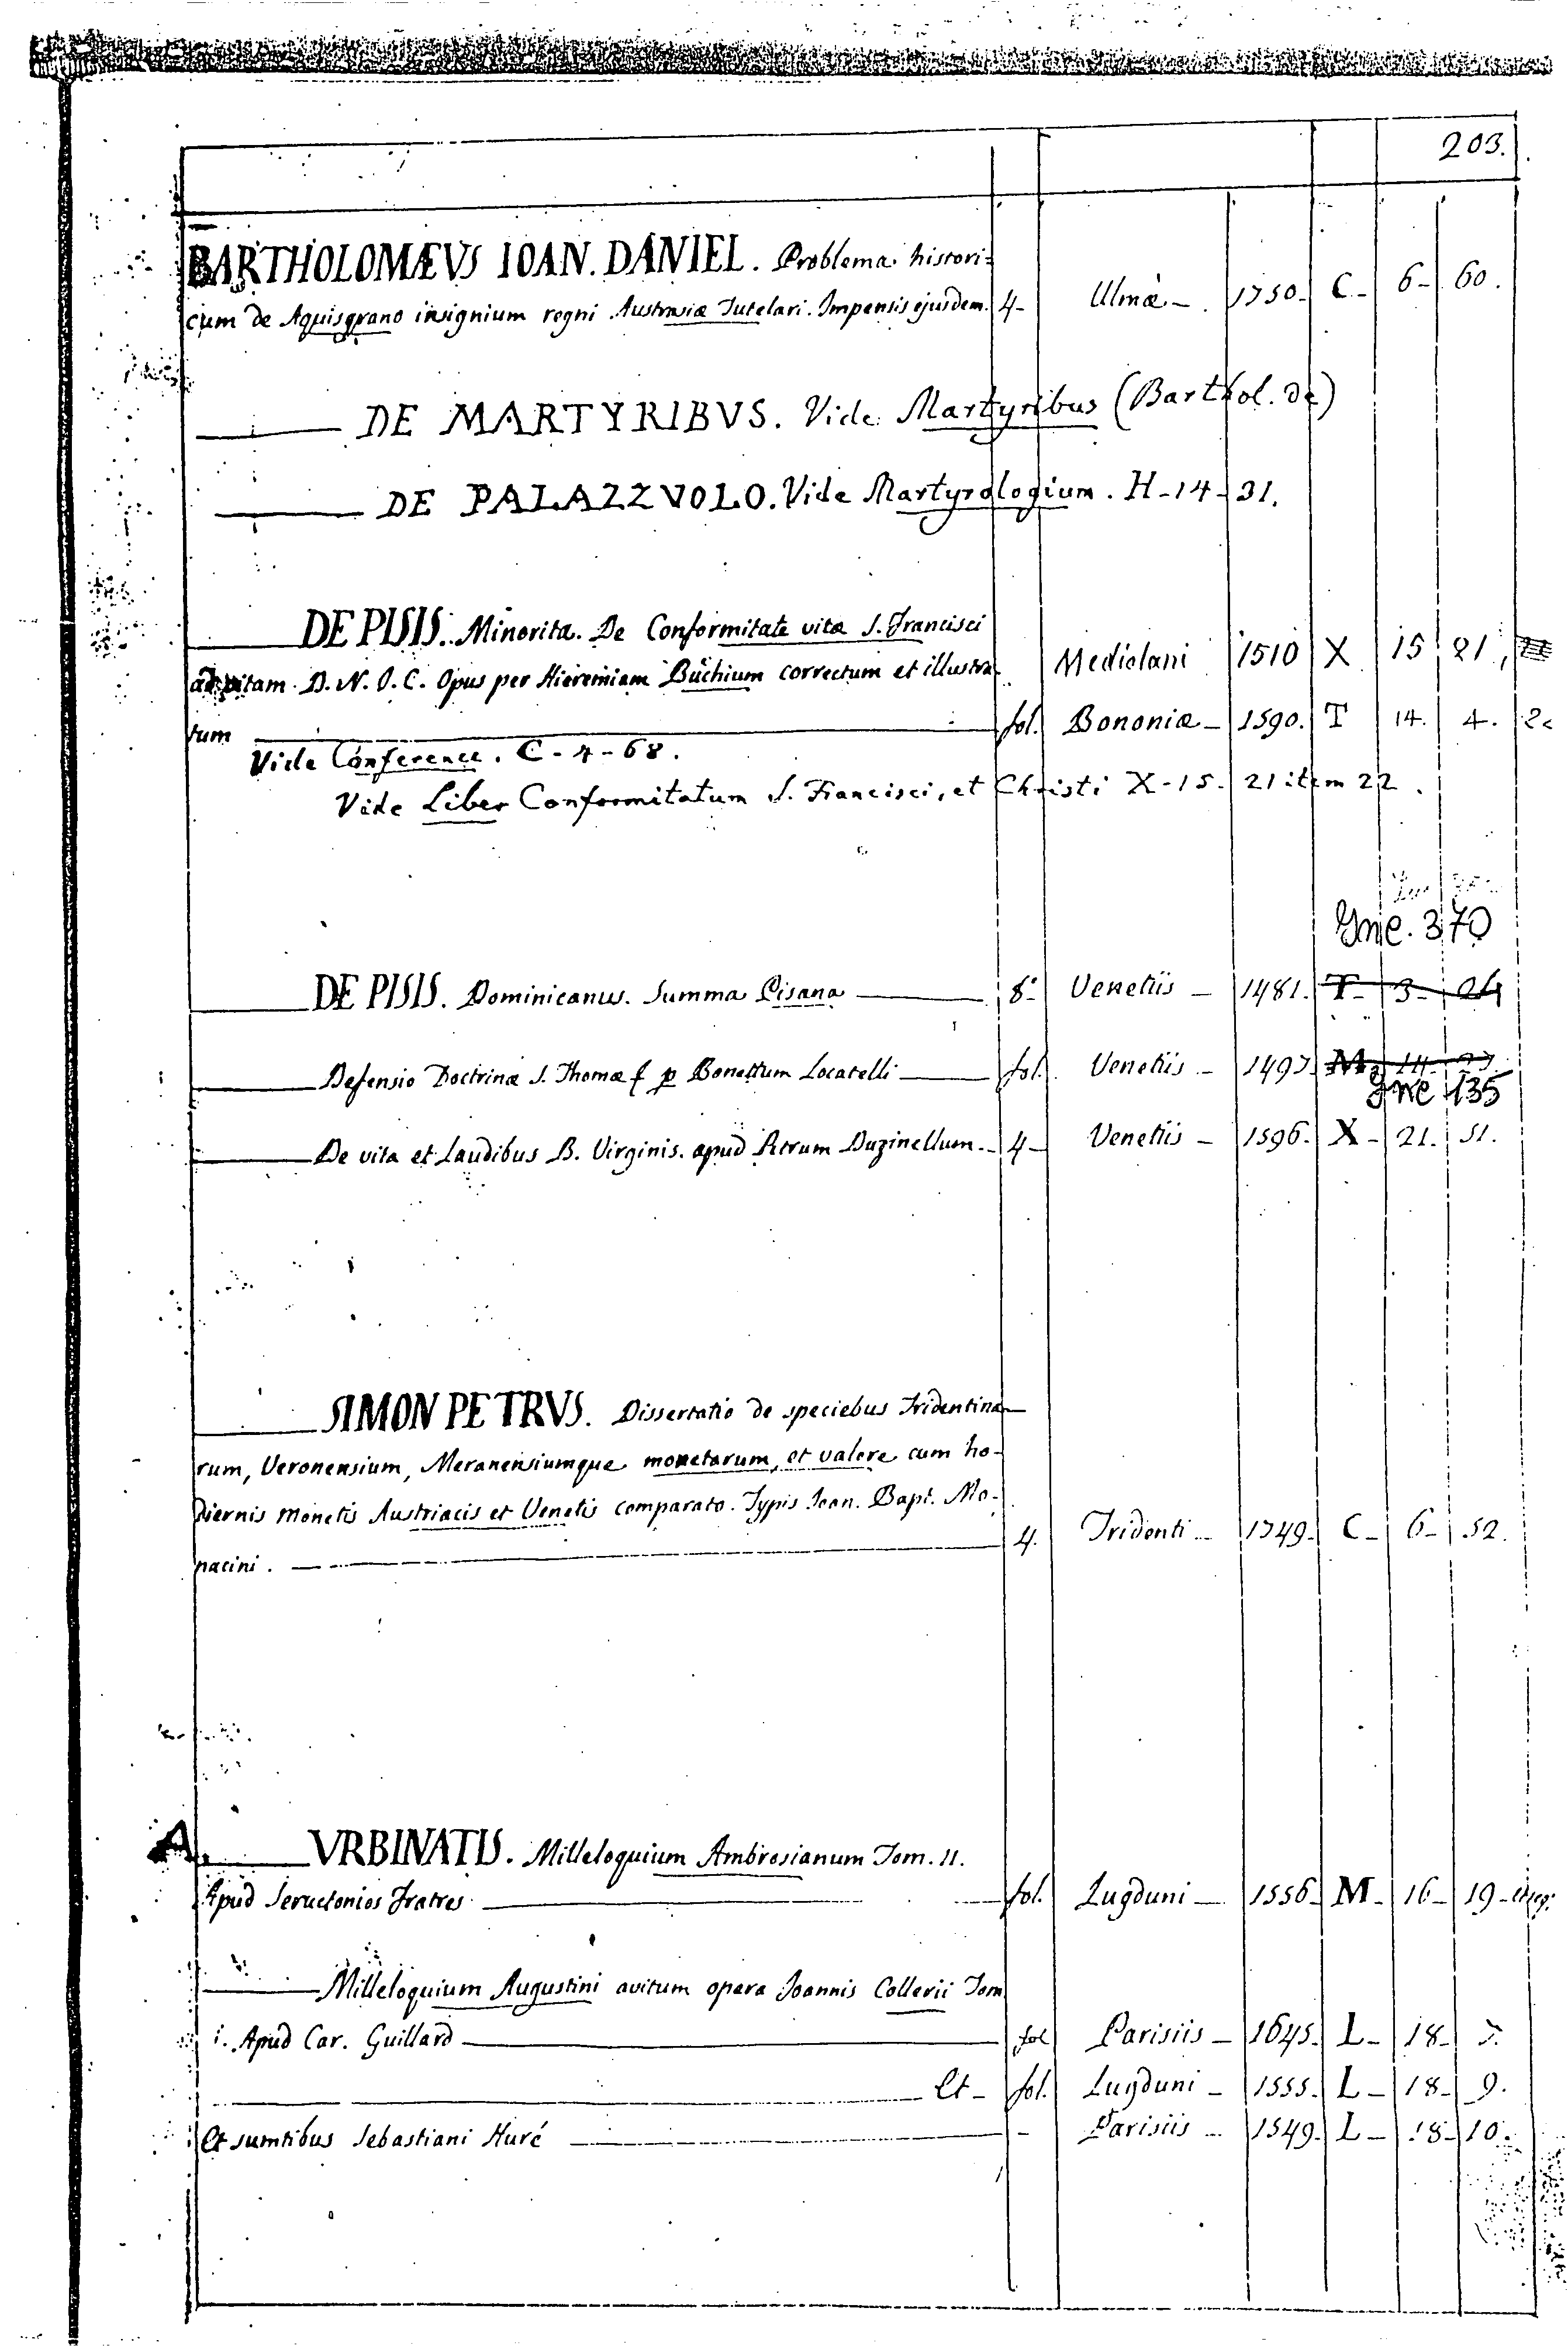 203.
BARTHOLOMÆVS IOAN. DANIEL. Problema histori-
cum de Aquisgrano insignium regni Austrasiæ Tutelari. Impensis ejusdem. 4- Ulmæ - 1750- C- 6- 60.
DE MARTYRIBVS. Vide Martyribus (Barthol. de)
DE PALAZZVOLO. Vide Martyrologium. H-14-31.
DE PISIS. Minorita. De Conformitate vitæ S. Francisci
ad vitam D. N. J. C. Opus per Hieremiam Buchium correctum et illustra- Mediolani 1510 X 15 21,
tum fol. Bononiæ - 1590. T 14. 4.
Vide Conference. C-4-68.
Vide Liber Conformitatum S. Francisci, et Christi X-15. 21 item 22.
Ync. 370
DE PISIS. Dominicanus. Summa Pisana 8- Venetiis - 1481. T- 3- 24
Defensio Doctrinæ S. Thomæ p Bonettum Locatelli fol. Venetiis - 1497 M- 14-
Ync 135
De vita et Laudibus B. Virginis. apud Petrum Duzinellum. - 4- Venetiis - 1596. X- 21. 51.
SIMON PETRVS. Dissertatio de speciebus Tridentina-
rum, Veronensium, Meranensiumque monetarum, et valore cum ho-
diernis monetis Austriacis et Venetis comparato. Typis Joan. Bapt. Mo-
nacini. 4. Tridenti - 1749- C- 6- 52.
A. VRBINATIS. Milleloquium Ambrosianum Tom. II.
Apud Senetonios Fratres fol. Lugduni - 1556- M- 16- 19- et seq.
Milleloquium Augustini avitum opera Joannis Collerii Tom
i. Apud Car. Guillard fol Parisiis - 1645. L- 18- 7.
Et- fol. Lugduni - 1555. L- 18- 9.
Et sumtibus Sebastiani Huré - Parisiis - 1549. L- 18- 10.